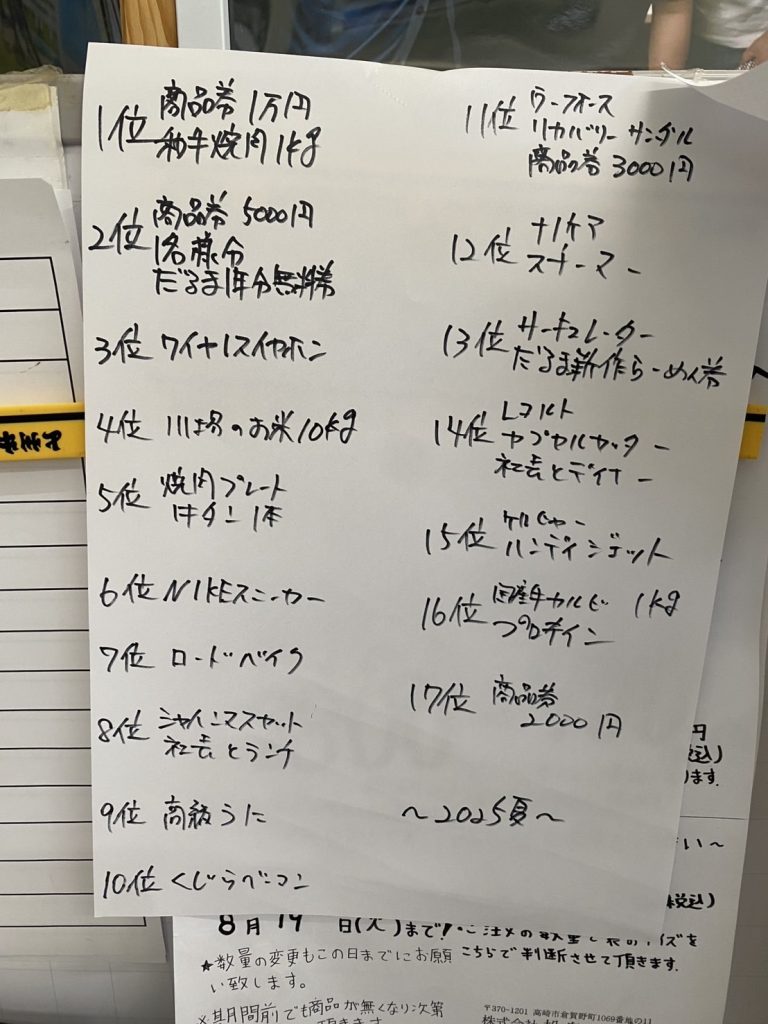 1位 商品券 1万円
和牛焼肉 1kg
2位 商品券 5000円
1名様分
だるま1年分無料券
3位 ワイヤレスイヤホン
4位 川場のお米10kg
5位 焼肉プレート
牛タン 1本
6位 NIKEスニーカー
7位 ロードバイク
8位 シャインマスカット
社長とランチ
9位 高級うに
10位 くじらベーコン
11位 ワーフォース
リカバリー サンダル
商品券 3000円
12位 ナノケア
スチーマー
13位 サーキュレーター
だるま新作らーめん券
14位 レコルト
カプセルカッター
社長とディナー
15位 ケルヒャー
ハンディジェット
16位 国産牛カルビ 1kg
プロテイン
17位 商品券
2000円
～2025夏～
円
税込)
ます。
い～
税込)
8月19日(火)まで!
こちらで判断させて頂きます。
★数量の変更もこの日までにお願
い致します。
※期間前でも商品が無くなり次第
〒370-1201 高崎市倉賀野町1069番地の11
株式会社